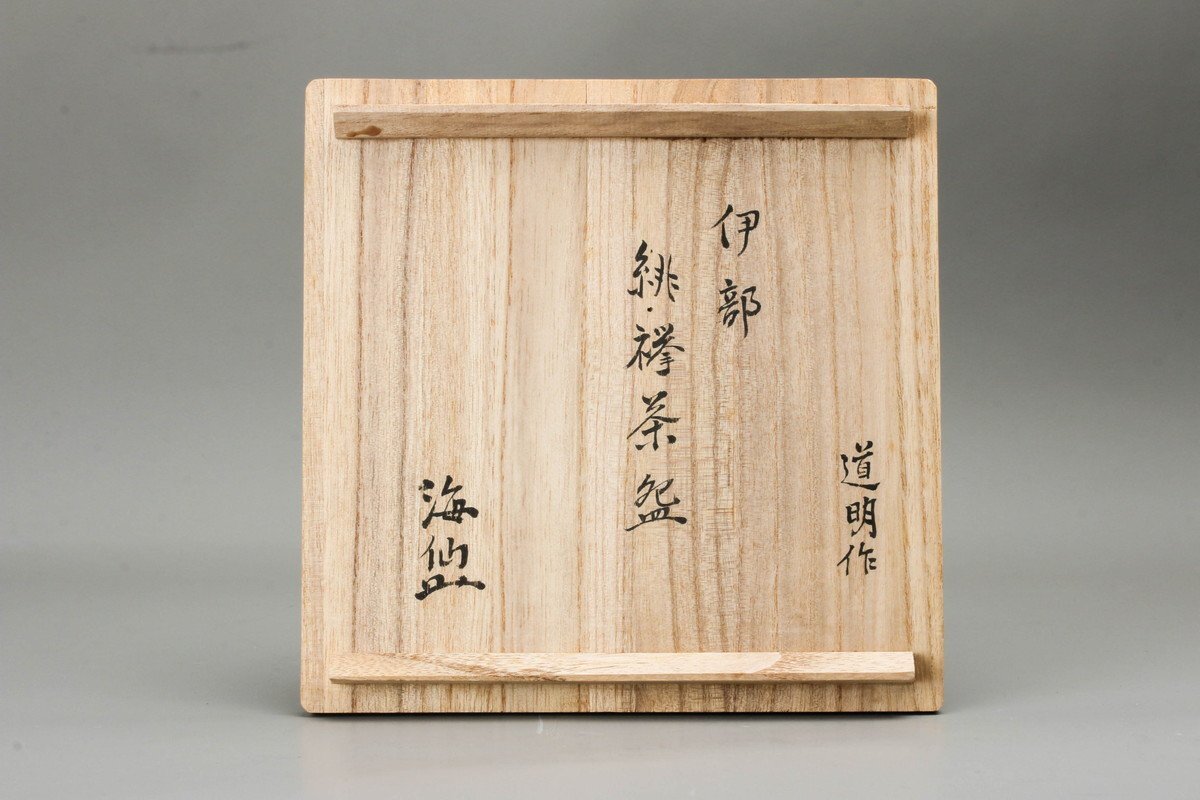 道明作
伊部
緋襷茶盌
海仙